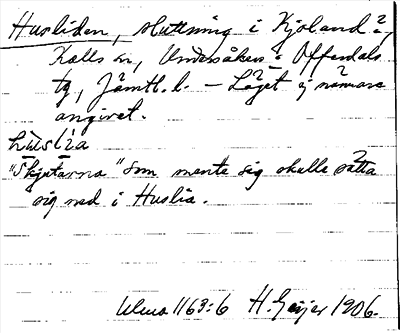 Husliden, sluttning i Kjoland ?,
Kalls sn, Undersåkers o Offerdals
tg, Jämtl. l. – Läget ej närmare
angivet.
hùslìa
"Skjutarna" som mente sig skulle sätta
sig ned i Huslia.
Ulma 1163:6 H. Geijer 1906.